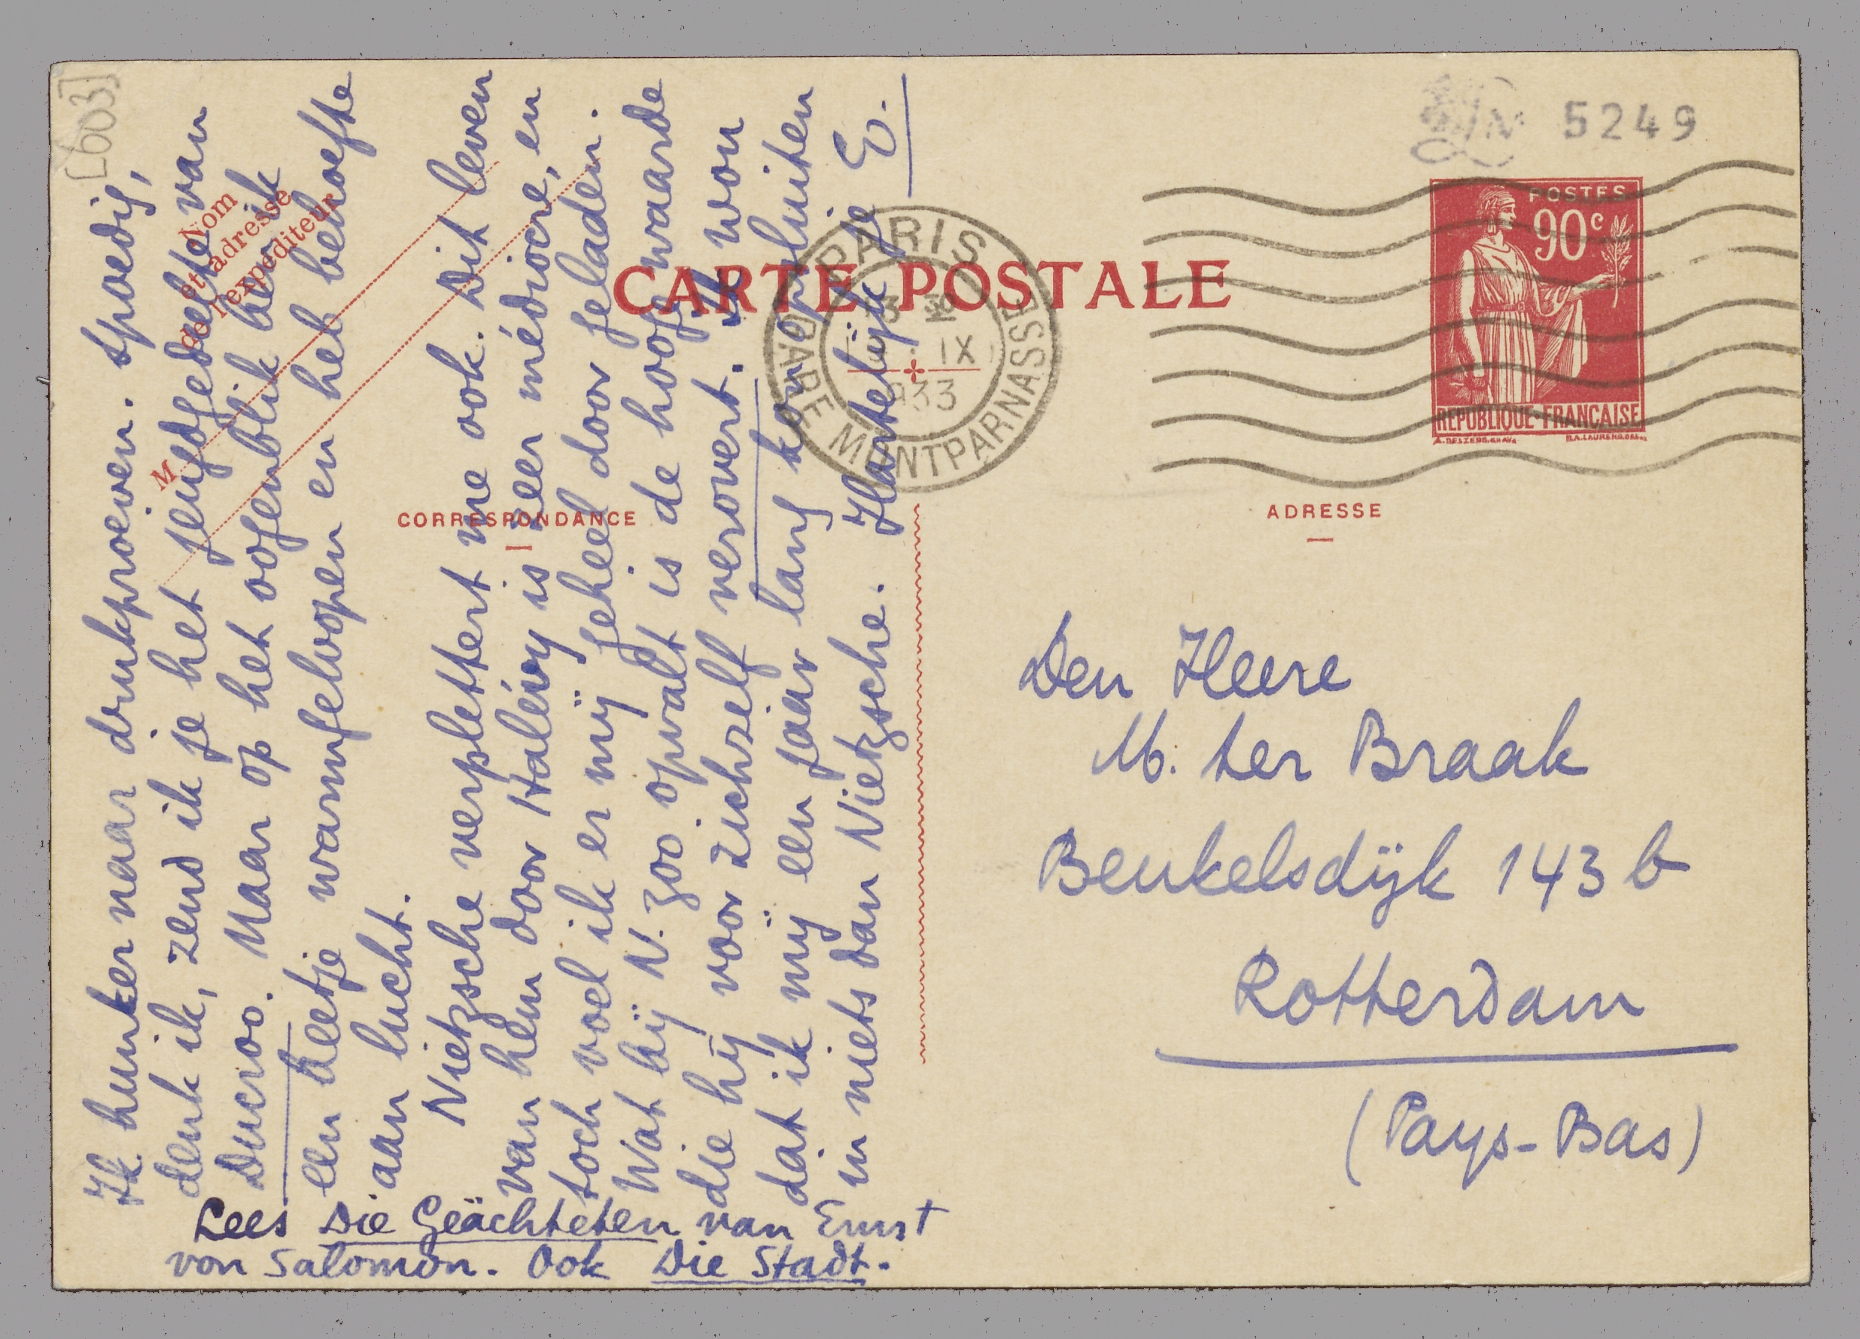 [603]
5249
POSTES
90c
REPUBLIQUE-FRANÇAISE
CARTE POSTALE
PARIS
GARE MONTPARNASSE
IX
1933
Nom
et adresse
de l'expéditeur
M
CORRESPONDANCE
ADRESSE
Ik hunker naar drukproeven. Spoedig,
denk ik, zend ik je het jeugdgedeelte van
Ducroo. Maar op het oogenblik ben ik
een beetje warmgeloopen en heb behoefte
aan lucht.
Nietzsche verplettert me ook. Dit leven
van hem door Halévy is zeer médiocre, en
toch voel ik er mij geheel door geladen.
Wat bij N. zoo opvalt is de hooge waarde
die hij voor zichzelf verovert. Ik wou
dat ik mij een jaar lang kon opsluiten
in niets dan Nietzsche. Hartelijk je E.
Lees Die Geächteten van Ernst
von Salomon. Ook Die Stadt.
Den Heere
M. ter Braak
Beukelsdijk 143 b
Rotterdam
(Pays-Bas)